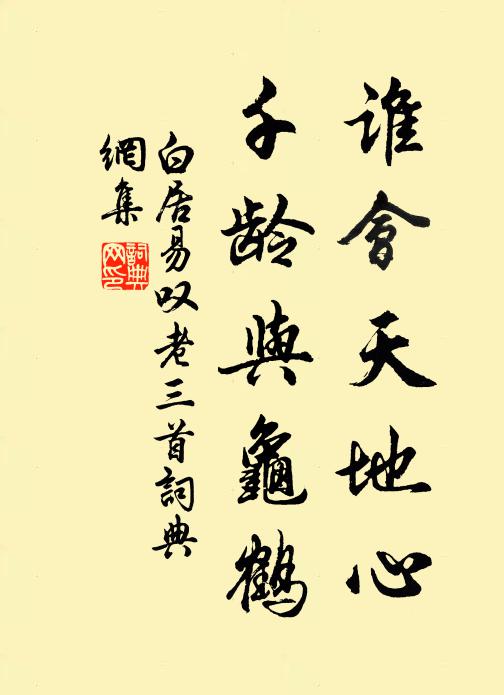 誰會天地心
千龄與龜鶴
白居易叹老三首詞典
網集
詞典網印